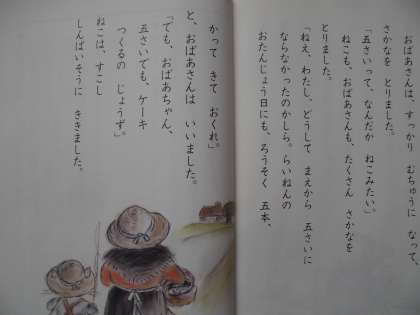 おばあさんは、すっかり むちゅうに なって、
さかなを とりました。
「五さいって、なんだか ねこみたい」
ねこも、おばあさんも、たくさん さかなを
とりました。
「ねえ、わたし、どうして まえから 五さいに
ならなかったのかしら。らいねんの
おたんじょう日にも、ろうそく 五本、
かって きて おくれ」
と、おばあさんは いいました。
「でも、おばあちゃん、
五さいでも、ケーキ
つくるの じょうず」
ねこは、すこし
しんぱいそうに ききました。